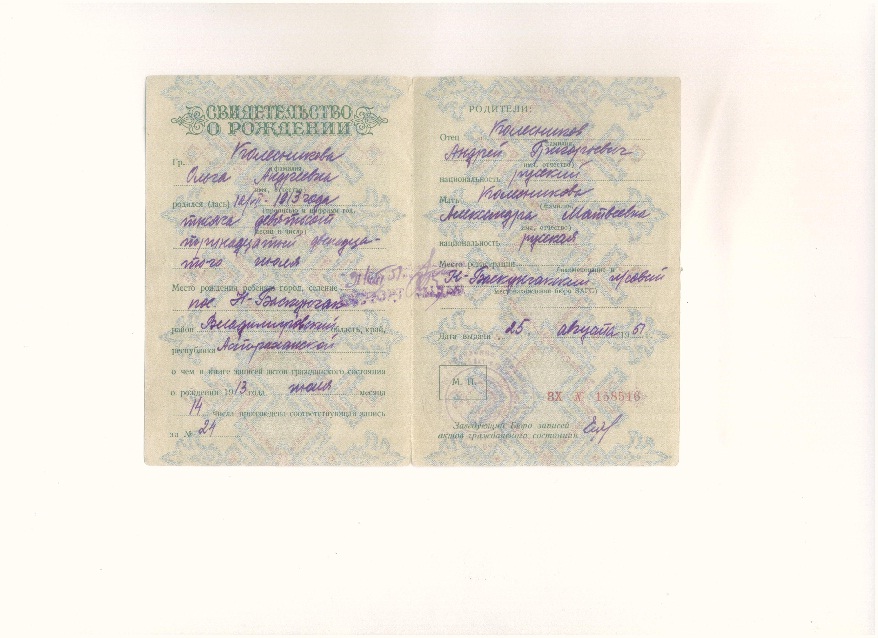 СВИДЕТЕЛЬСТВО
О РОЖДЕНИИ
Гр. Колесникова
(фамилия)
Ольга Андреевна
имя, отчество)
родился (лась) 12/VII - 1913 года
(прописью и цифрами год,
тысяча девятьсот
месяц и число)
тринадцатый двенадца-
того июля
Место рождения ребенка: город, селение
пос. Н-Баскунчак
район Владимировский область, край,
республика Астраханской
о чем в книге записей актов гражданского состояния
о рождении 1913 года июля месяца
14 числа произведена соответствующая запись
за № 24
РОДИТЕЛИ:
Отец Колесников
(фамилия,
Андрей Григорьевич
имя, отчество)
национальность русский
Мать Колесникова
(фамилия,
Александра Матвеевна
имя, отчество)
национальность русская
Место регистрации
(наименование и
Н-Баскунчакский
местонахождение бюро ЗАГС)
Дата выдачи 25 августа 1951
М. П.
ВХ № 158516
Заведующий Бюро записей
актов гражданского состояния